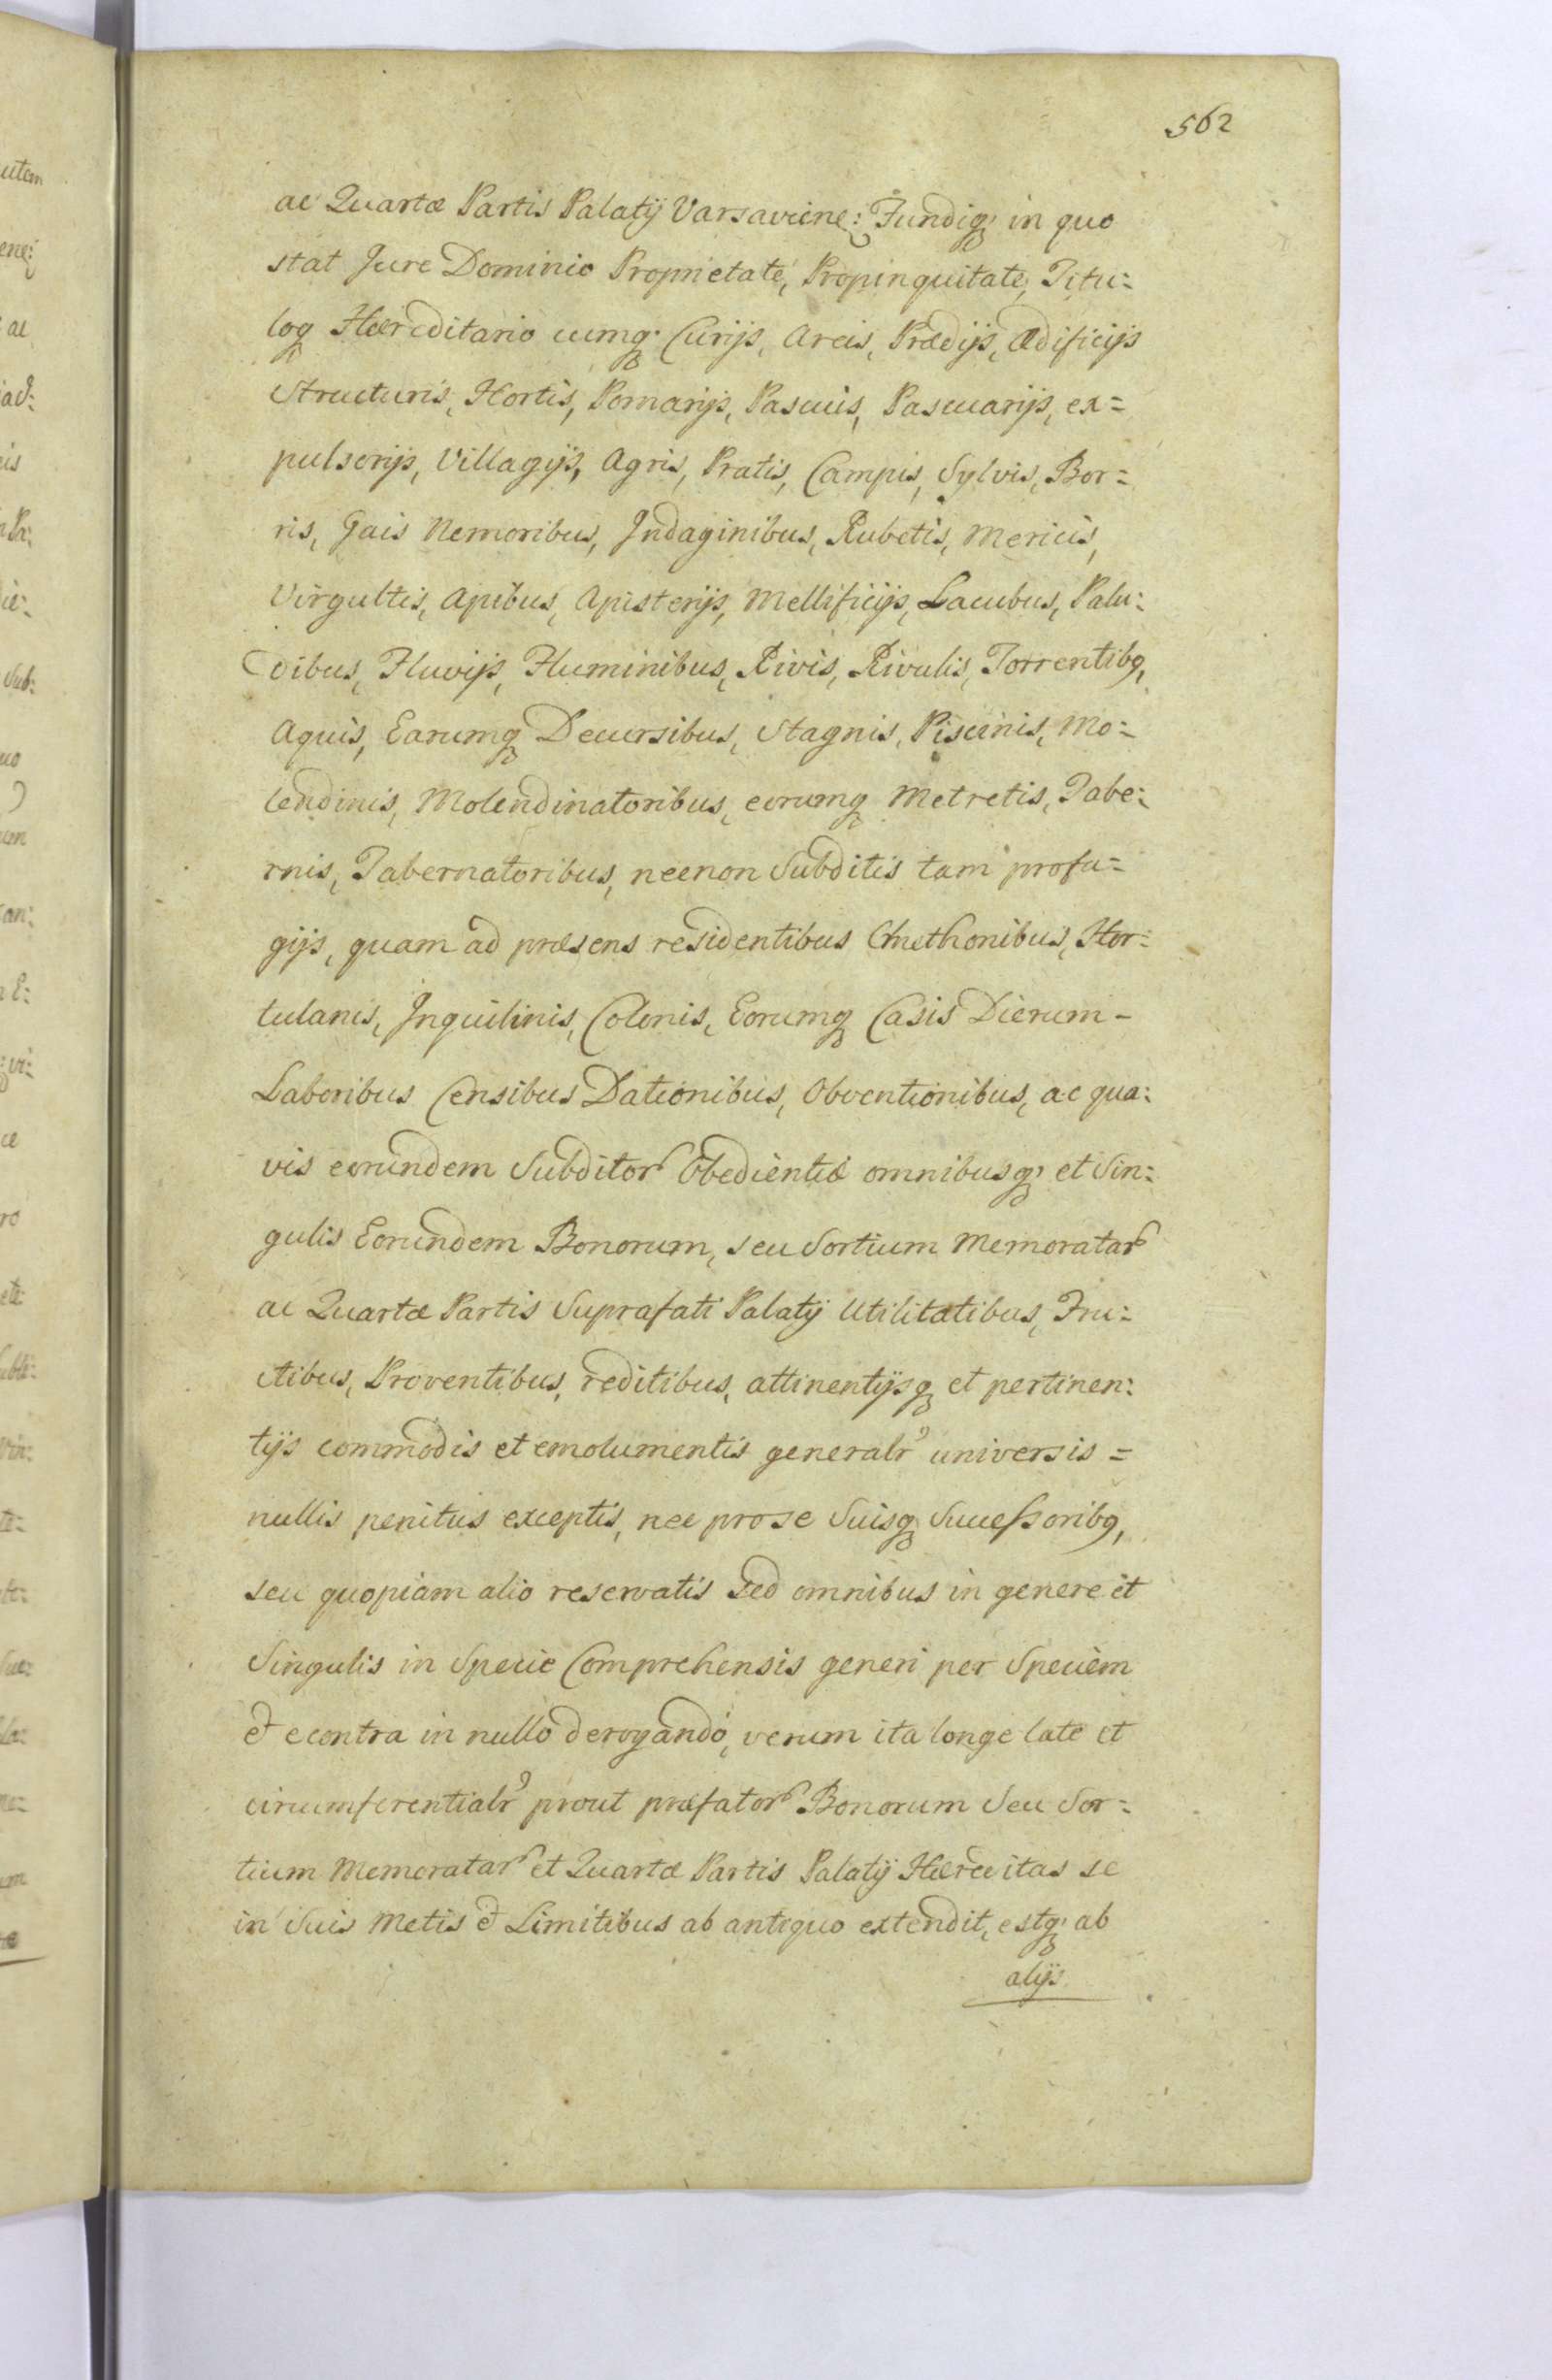 562
ac Quartæ Partis Palatij Varsaviene: Fundiq; in quo
stat Jure Dominio Proprietate, Propinquitate, Titu:
loq Hæreditario cumq; Curijs, Areis, Prædijs, Ædificijs
Structuris, Hortis, Pomarijs, Pascuis, Pascuarijs, ex=
pulsorijs, Villagijs, Agris, Pratis, Campis, Sylvis, Bor=
ris, Gais Nemoribus, Indaginibus, Rubetis, Mericis,
Virgultis, Apibus, Apisterijs, Mellificijs, Lacubus, Palu:
dibus, Fluvijs, Fluminibus, Rivis, Rivulis, Torrentibq,
Aquis, Earumq Decursibus, Stagnis, Piscinis, Mo=
lendinis, Molendinatoribus, eorumq Metretis, Tabe:
rnis, Tabernatoribus, necnon Subditis tam profu=
gijs, quam ad præsens residentibus Cmethonibus, Hor:
tulanis, Inquilinis, Colonis, Eorumq Casis Dierum-
Laboribus Censibus Dationibus, Obventionibus, ac qua:
vis eorundem Subditor Obedientiâ omnibusq; et Sin:
gulis Eorundem Bonorum, seu Sortium Memoratar
ac Quartæ Partis Suprafati Palatij Utilitatibus, Fru:
ctibus, Proventibus, reditibus, attinentijsq et pertinen:
tijs commodis et emolumentis generalr universis =
nullis penitus exceptis, nec pro se Suisq Succeßoribq,
seu quopiam alio reservatis Sed omnibus in genere et
Singulis in Specie Comprehensis generi per Speciem
et econtra in nullo derogando, verum ita longe late et
circumferentialr prout præfator Bonorum Seu Sor:
tium Memoratar et Quartæ Partis Palatij Hæreditas se
in Suis Metis et Limitibus ab antiquo extendit, estq; ab
alijs